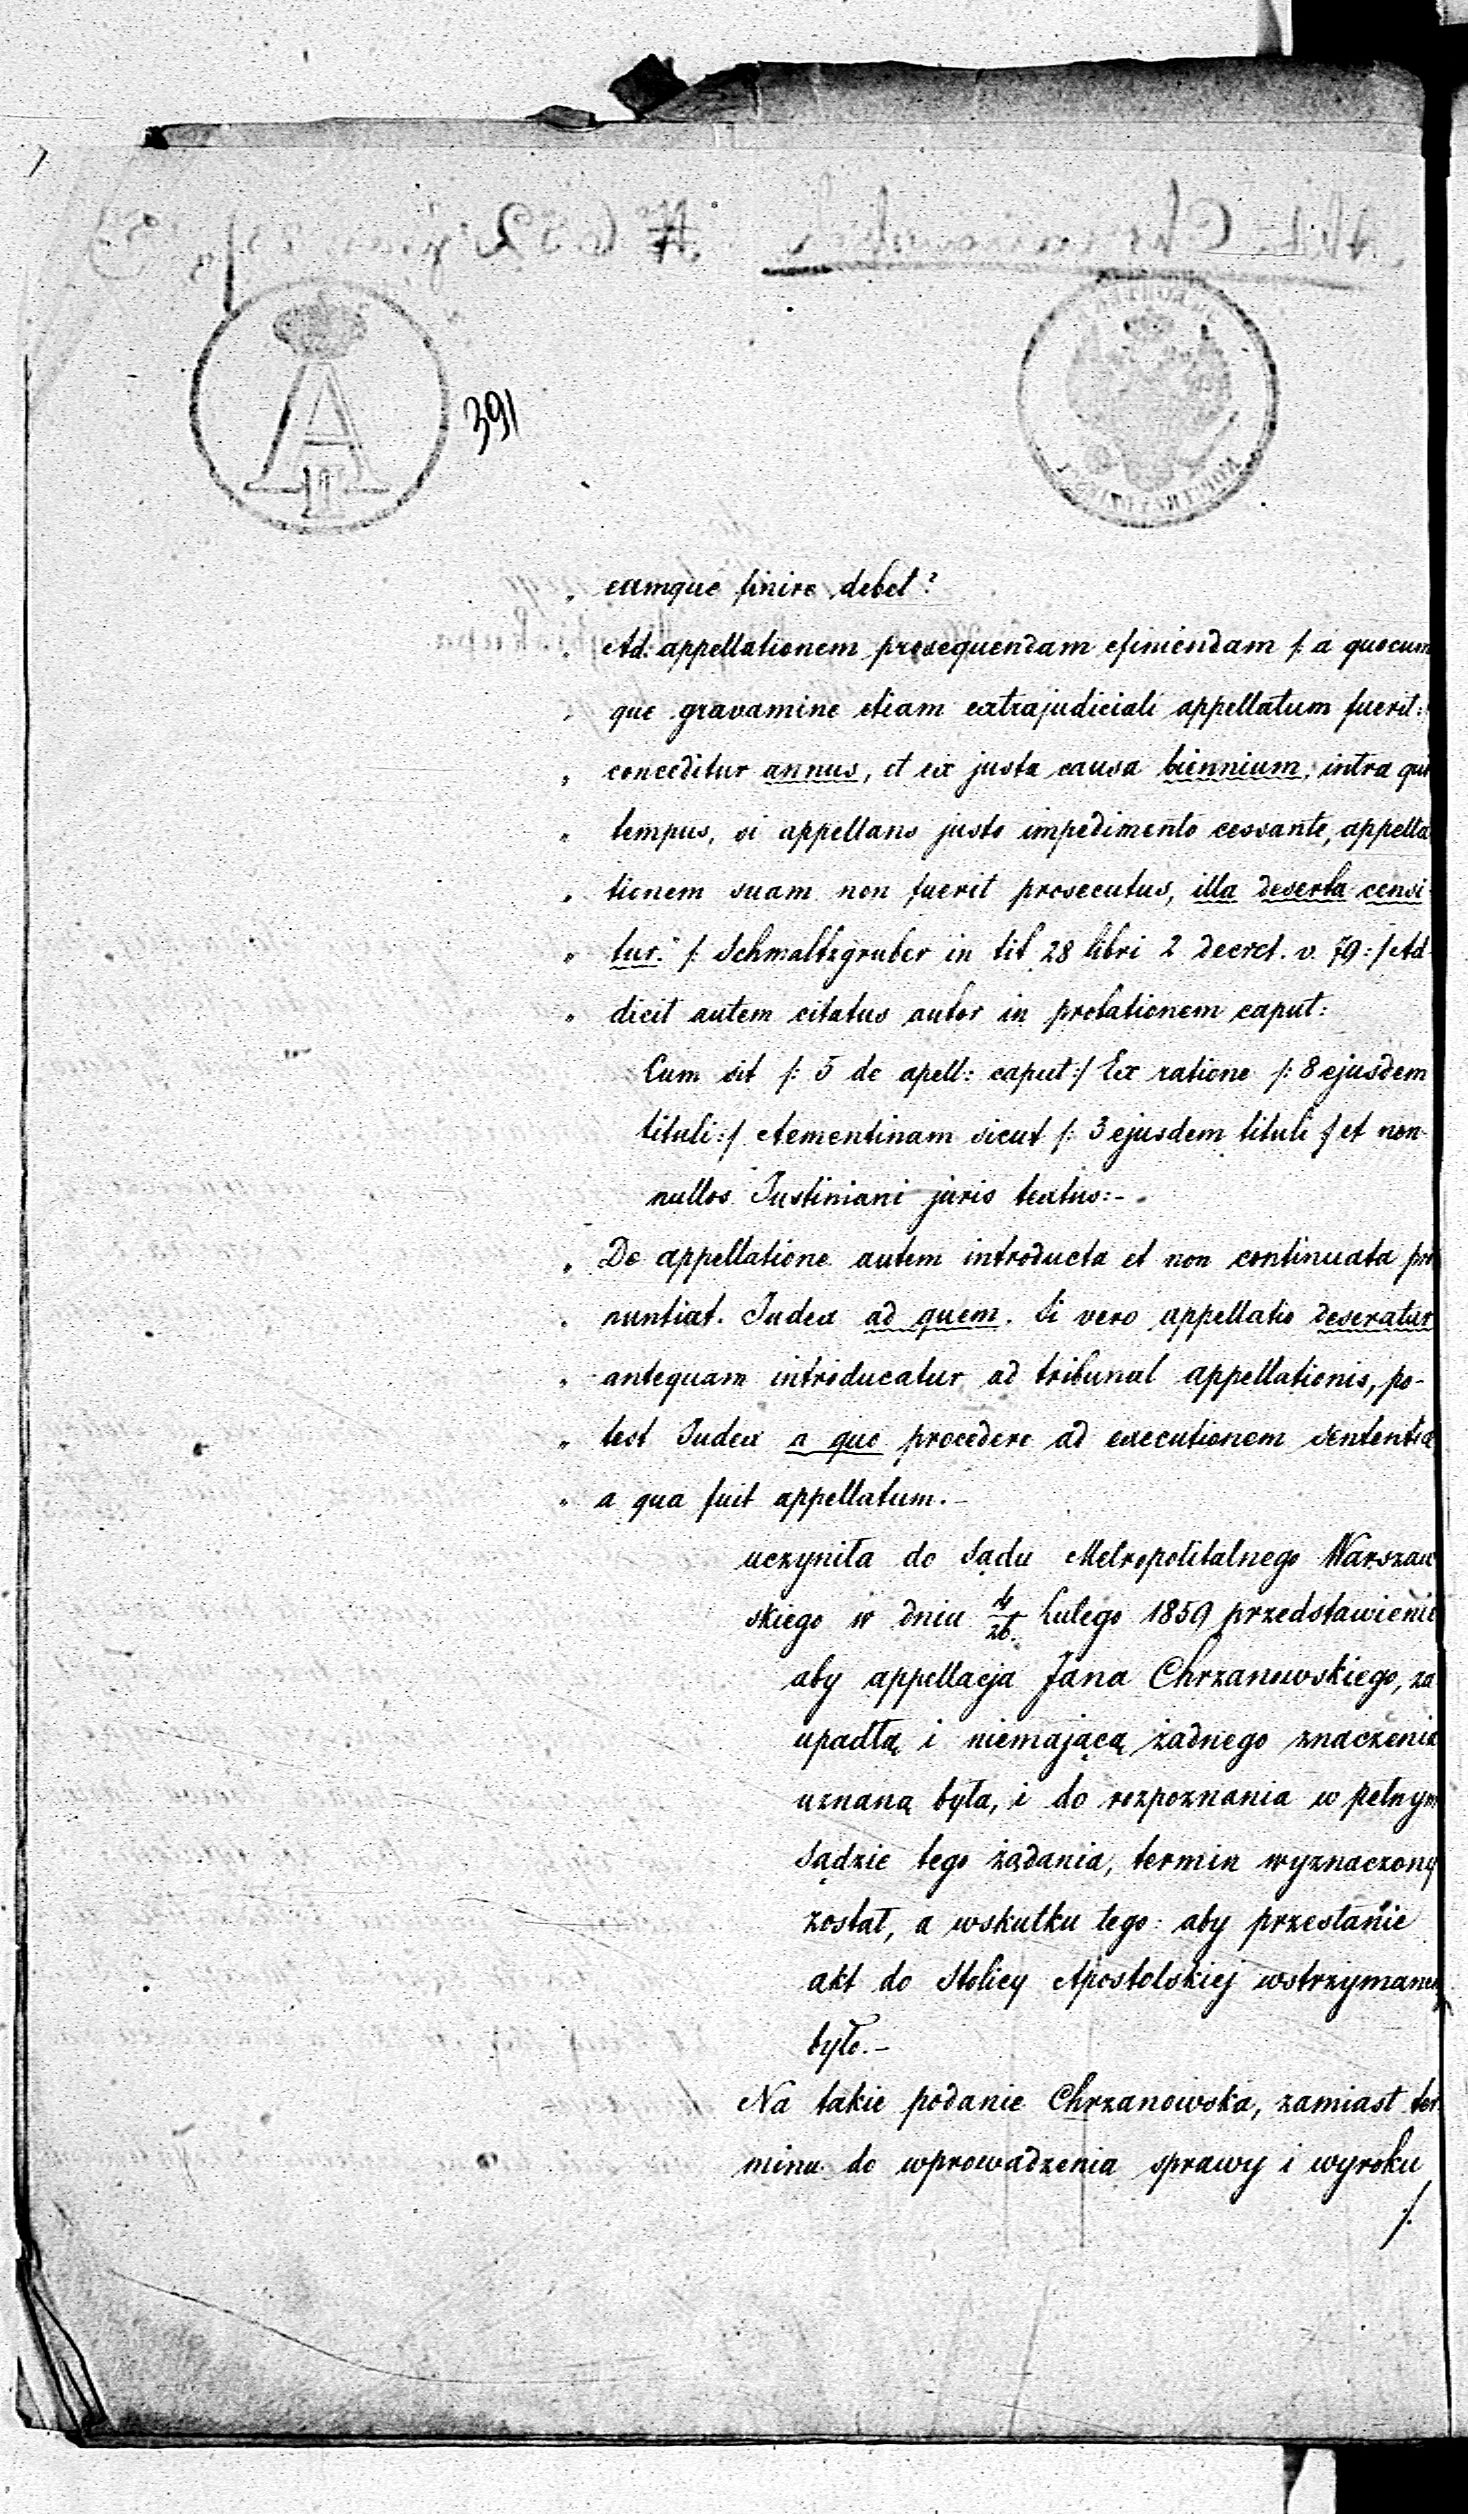 391
„ eamque finire debet?
„ Ad appellationem prosequendam efiniendam /: a quocum
„ que gravamine etiam extrajudiciali appellatum fuerit:
„ conceditur annus, et ex justa causa biennium; intra
„ tempus, si appellans justo impedimento cessante, appella
„ tionem suam non fuerit prosecutus, illa deserta censi-
„ tur." /: Schmaltzgruber in tit 28 libri 2 decret. v. 79:/ Ad-
„ dicit autem citatus autor in probationem caput:
Cum sit /: 5 de apell: caput:/ Ex ratione /: 8 ejusdem
tituli:/ Clementinam sicut /: 3 ejusdem tituli :/ et non-
nullos Justiniani juris textus:-
„ De appellatione autem introducta et non continuata pro
„ nuntiat Judex ad quem. Si vero appellatio deseratur
„ antequam introducatur ad tribunal appellationis, po-
„ test Judex a quo procedere ad executionem sententia
„ a qua fuit appellatum.-
uczyniła do Sądu Metropolitalnego Warszaw
skiego w dniu 14/26. Lutego 1859 przedstawienie
aby appellacja Jana Chrzanowskiego, za
upadłą i niemającą żadnego znaczenia
uznaną była, i do rozpoznania w pełnym
Sądzie tego żądania, termin wyznaczony
został, a wskutku tego: aby przesłanie
akt do Stolicy Apostolskiej wstrzymanem
było.-
Na takie podanie Chrzanowska, zamiast ter
minu do wprowadzenia sprawy i wyroku
/.